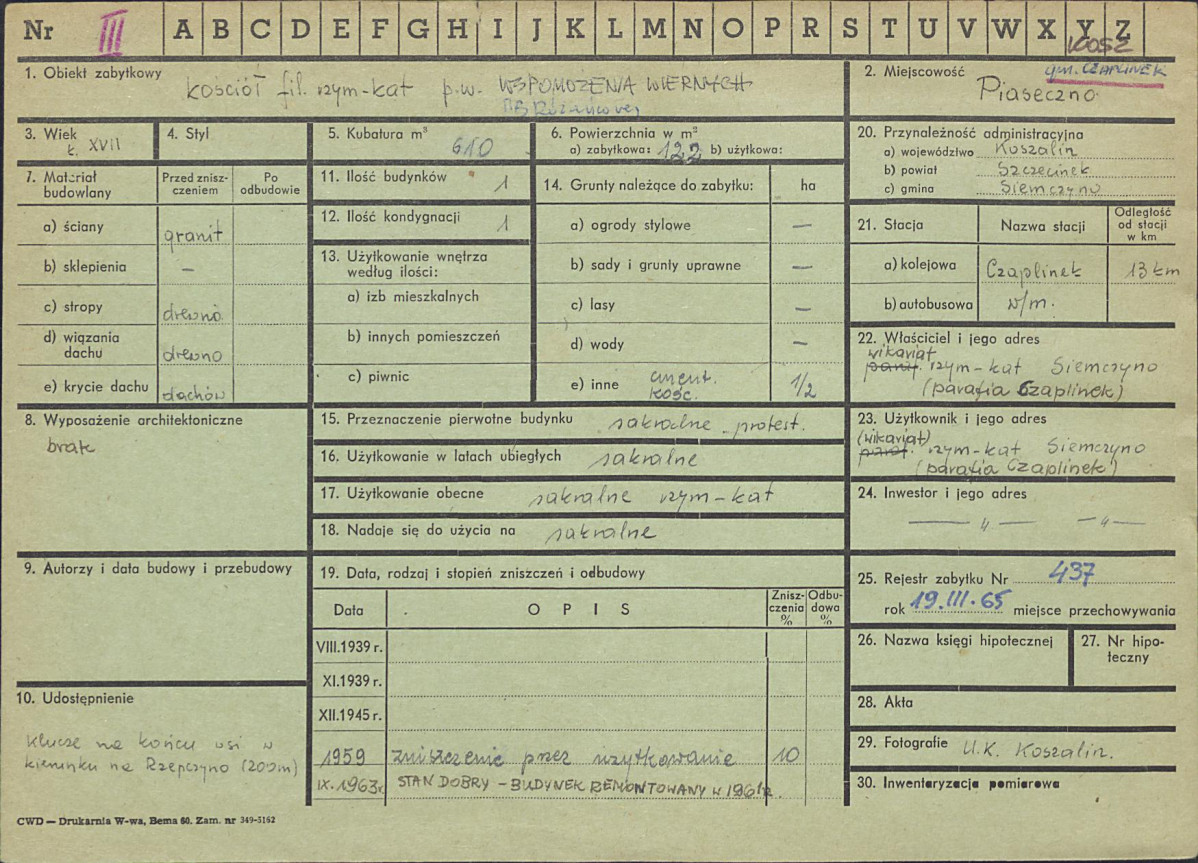 Nr III A B C D E F G H I J K L M N O P R S T U V W X Y Z
KOSZ
1. Obiekt zabytkowy kościół fil. rzym-kat p.w. WSPOMOŻENIA WIERNYCH
MB Różańcowej
2. Miejscowość gm. CZAPLINEK
Piaseczno
3. Wiek XVII
4. Styl
5. Kubatura m³ 610
6. Powierzchnia w m²
a) zabytkowa: 122 b) użytkowa:
7. Materiał budowlany
Przed zniszczeniem
Po odbudowie
a) ściany granit
b) sklepienia —
c) stropy drewno
d) wiązania dachu drewno
e) krycie dachu dachów
8. Wyposażenie architektoniczne
brak
9. Autorzy i data budowy i przebudowy
10. Udostępnienie
Klucze na końcu wsi w
kierunku na Rzepczyno (200m)
11. Ilość budynków 1
12. Ilość kondygnacji 1
13. Użytkowanie wnętrza
według ilości:
a) izb mieszkalnych
b) innych pomieszczeń
c) piwnic
14. Grunty należące do zabytku: ha
a) ogrody stylowe —
b) sady i grunty uprawne —
c) lasy —
d) wody —
e) inne cment. kośc. 1/2
15. Przeznaczenie pierwotne budynku sakralne protest.
16. Użytkowanie w latach ubiegłych sakralne
17. Użytkowanie obecne sakralne rzym-kat
18. Nadaje się do użycia na sakralne
19. Data, rodzaj i stopień zniszczeń i odbudowy
Data OPIS Zniszczenia % Odbudowa %
VIII.1939 r.
XI.1939 r.
XII.1945 r.
1959 zniszczenie przez użytkowanie 10
IX.1963r STAN DOBRY – BUDYNEK REMONTOWANY w 1961r.
20. Przynależność administracyjna
a) województwo Koszalin
b) powiat Szczecinek
c) gmina Siemczyno
21. Stacja Nazwa stacji Odległość od stacji w km
a) kolejowa Czaplinek 13 km
b) autobusowa w/m.
22. Właściciel i jego adres
wikariat
paraf. rzym-kat Siemczyno
(parafia Czaplinek)
23. Użytkownik i jego adres
(wikariat)
paraf. rzym-kat Siemczyno
(parafia Czaplinek)
24. Inwestor i jego adres
— " — — " —
25. Rejestr zabytku Nr 437
rok 19.III.65 miejsce przechowywania
26. Nazwa księgi hipotecznej
27. Nr hipoteczny
28. Akta
29. Fotografie U.K. Koszalin.
30. Inwentaryzacja pomiarowa
CWD — Drukarnia W-wa, Bema 60. Zam. nr 349-5162